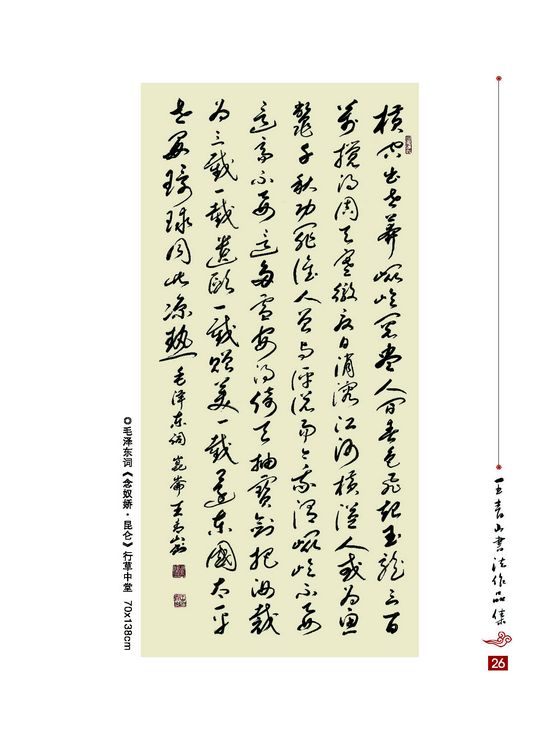 横空出世莽崐崘阅尽人间春色飞起玉龙三百
万搅得周天寒彻夏日消溶江河横溢人或为鱼
鳖千秋功罪谁人曾与评说而今我谓崐崘不要
这高不要这多雪安得倚天抽寶劍把汝裁
为三截一截遗欧一截赠美一截还东國太平
世界环球同此凉热 毛泽东词 崑崙 王青山
◎毛泽东词《念奴娇·昆仑》行草中堂 70x138cm
王青山書法作品集
26